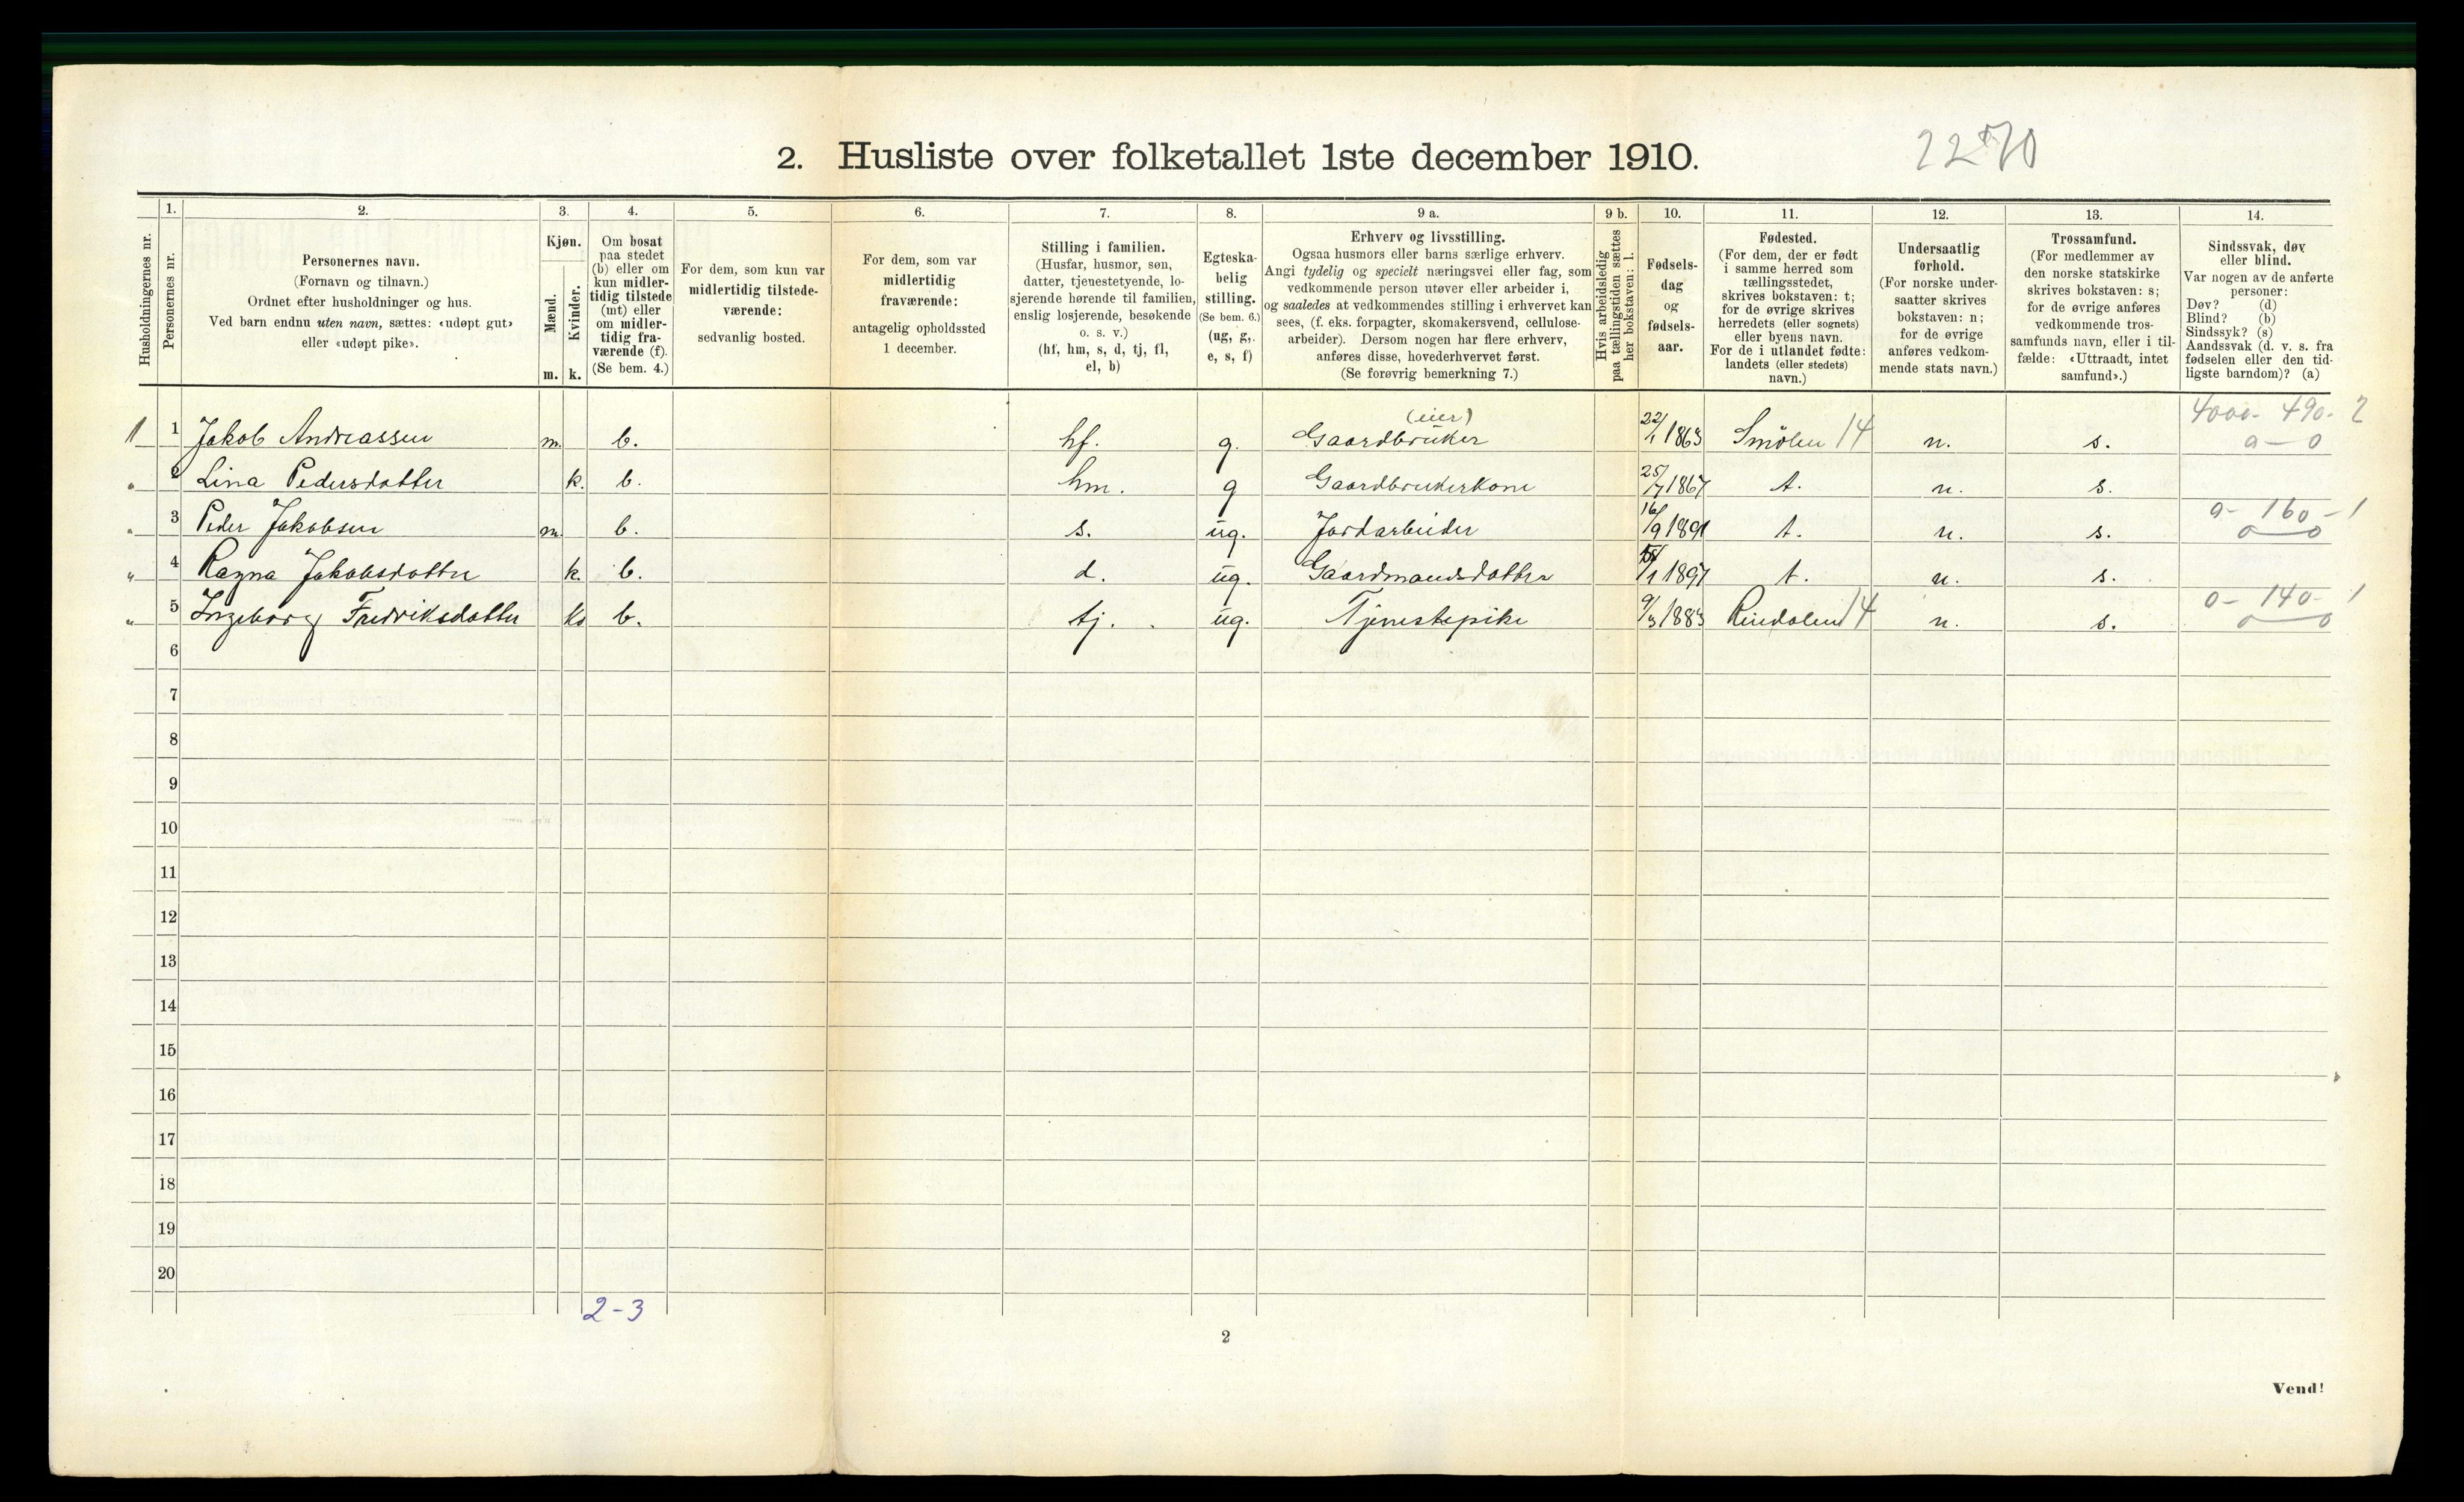 2. Husliste over folketallet 1ste december 1910.
2270
Husholdningernes nr.
1.
Personernes nr.
2.
Personernes navn.
(Fornavn og tilnavn.)
Ordnet efter husholdninger og hus.
Ved barn endnu uten navn, sættes: «udøpt gut»
eller «udøpt pike».
3.
Kjøn.
Mænd.
Kvinder.
m. k.
4.
Om bosat
paa stedet
(b) eller om
kun midler-
tidig tilstede
(mt) eller
om midler-
tidig fra-
værende (f).
(Se bem. 4.)
5.
For dem, som kun var
midlertidig tilstede-
værende:
sedvanlig bosted.
6.
For dem, som var
midlertidig
fraværende:
antagelig opholdssted
1 december.
7.
Stilling i familien.
(Husfar, husmor, søn,
datter, tjenestetyende, lo-
sjerende hørende til familien,
enslig losjerende, besøkende
o. s. v.)
(hf, hm, s, d, tj, fl,
el, b)
8.
Egteska-
belig
stilling.
(Se bem. 6.)
(ug, g,
e, s, f)
9 a.
Erhverv og livsstilling.
Ogsaa husmors eller barns særlige erhverv.
Angi tydelig og specielt næringsvei eller fag, som
vedkommende person utøver eller arbeider i,
og saaledes at vedkommendes stilling i erhvervet kan
sees, (f. eks. forpagter, skomakersvend, cellulose-
arbeider). Dersom nogen har flere erhverv,
anføres disse, hovederhvervet først.
(Se forøvrig bemerkning 7.)
9 b.
Hvis arbeidsledig
paa tællingstiden sættes
her bokstaven: l.
10.
Fødsels-
dag
og
fødsels-
aar.
11.
Fødested.
(For dem, der er født
i samme herred som
tællingsstedet,
skrives bokstaven: t;
for de øvrige skrives
herredets (eller sognets)
eller byens navn.
For de i utlandet fødte:
landets (eller stedets)
navn.)
12.
Undersaatlig
forhold.
(For norske under-
saatter skrives
bokstaven: n;
for de øvrige
anføres vedkom-
mende stats navn.)
13.
Trossamfund.
(For medlemmer av
den norske statskirke
skrives bokstaven: s;
for de øvrige anføres
vedkommende tros-
samfunds navn, eller i til-
fælde: «Uttraadt, intet
samfund».)
14.
Sindssvak, døv
eller blind.
Var nogen av de anførte
personer:
Døv? (d)
Blind? (b)
Sindssyk? (s)
Aandssvak (d. v. s. fra
fødselen eller den tid-
ligste barndom)? (a)
4000- 490- 2
1 1 Jakob Andreassen m. b. hf. g. Gaardbruker (eier) 22/1 1863 Smölen 14 n. s. 0 - 0
" 2 Lina Pedersdatter k. b. hm. g Gaardbrukerkone 25/7 1867 t. n. s.
0- 160 - 1
" 3 Peder Jakobsen m. b. s. ug. Jordarbeider 16/9 1891 t. n. s. 0 - 0
" 4 Ragna Jakobsdatter k. b. d. ug. Gaardmandsdatter 1897 t. n. s.
0- 140- 1
" 5 Ingeborg Fredriksdatter k. b. tj. ug. Tjenestepike 9/3 1883 Rindalen 14 n. s. 0 - 0
6
7
8
9
10
11
12
13
14
15
16
17
18
19
20
2-3
2
Vend!